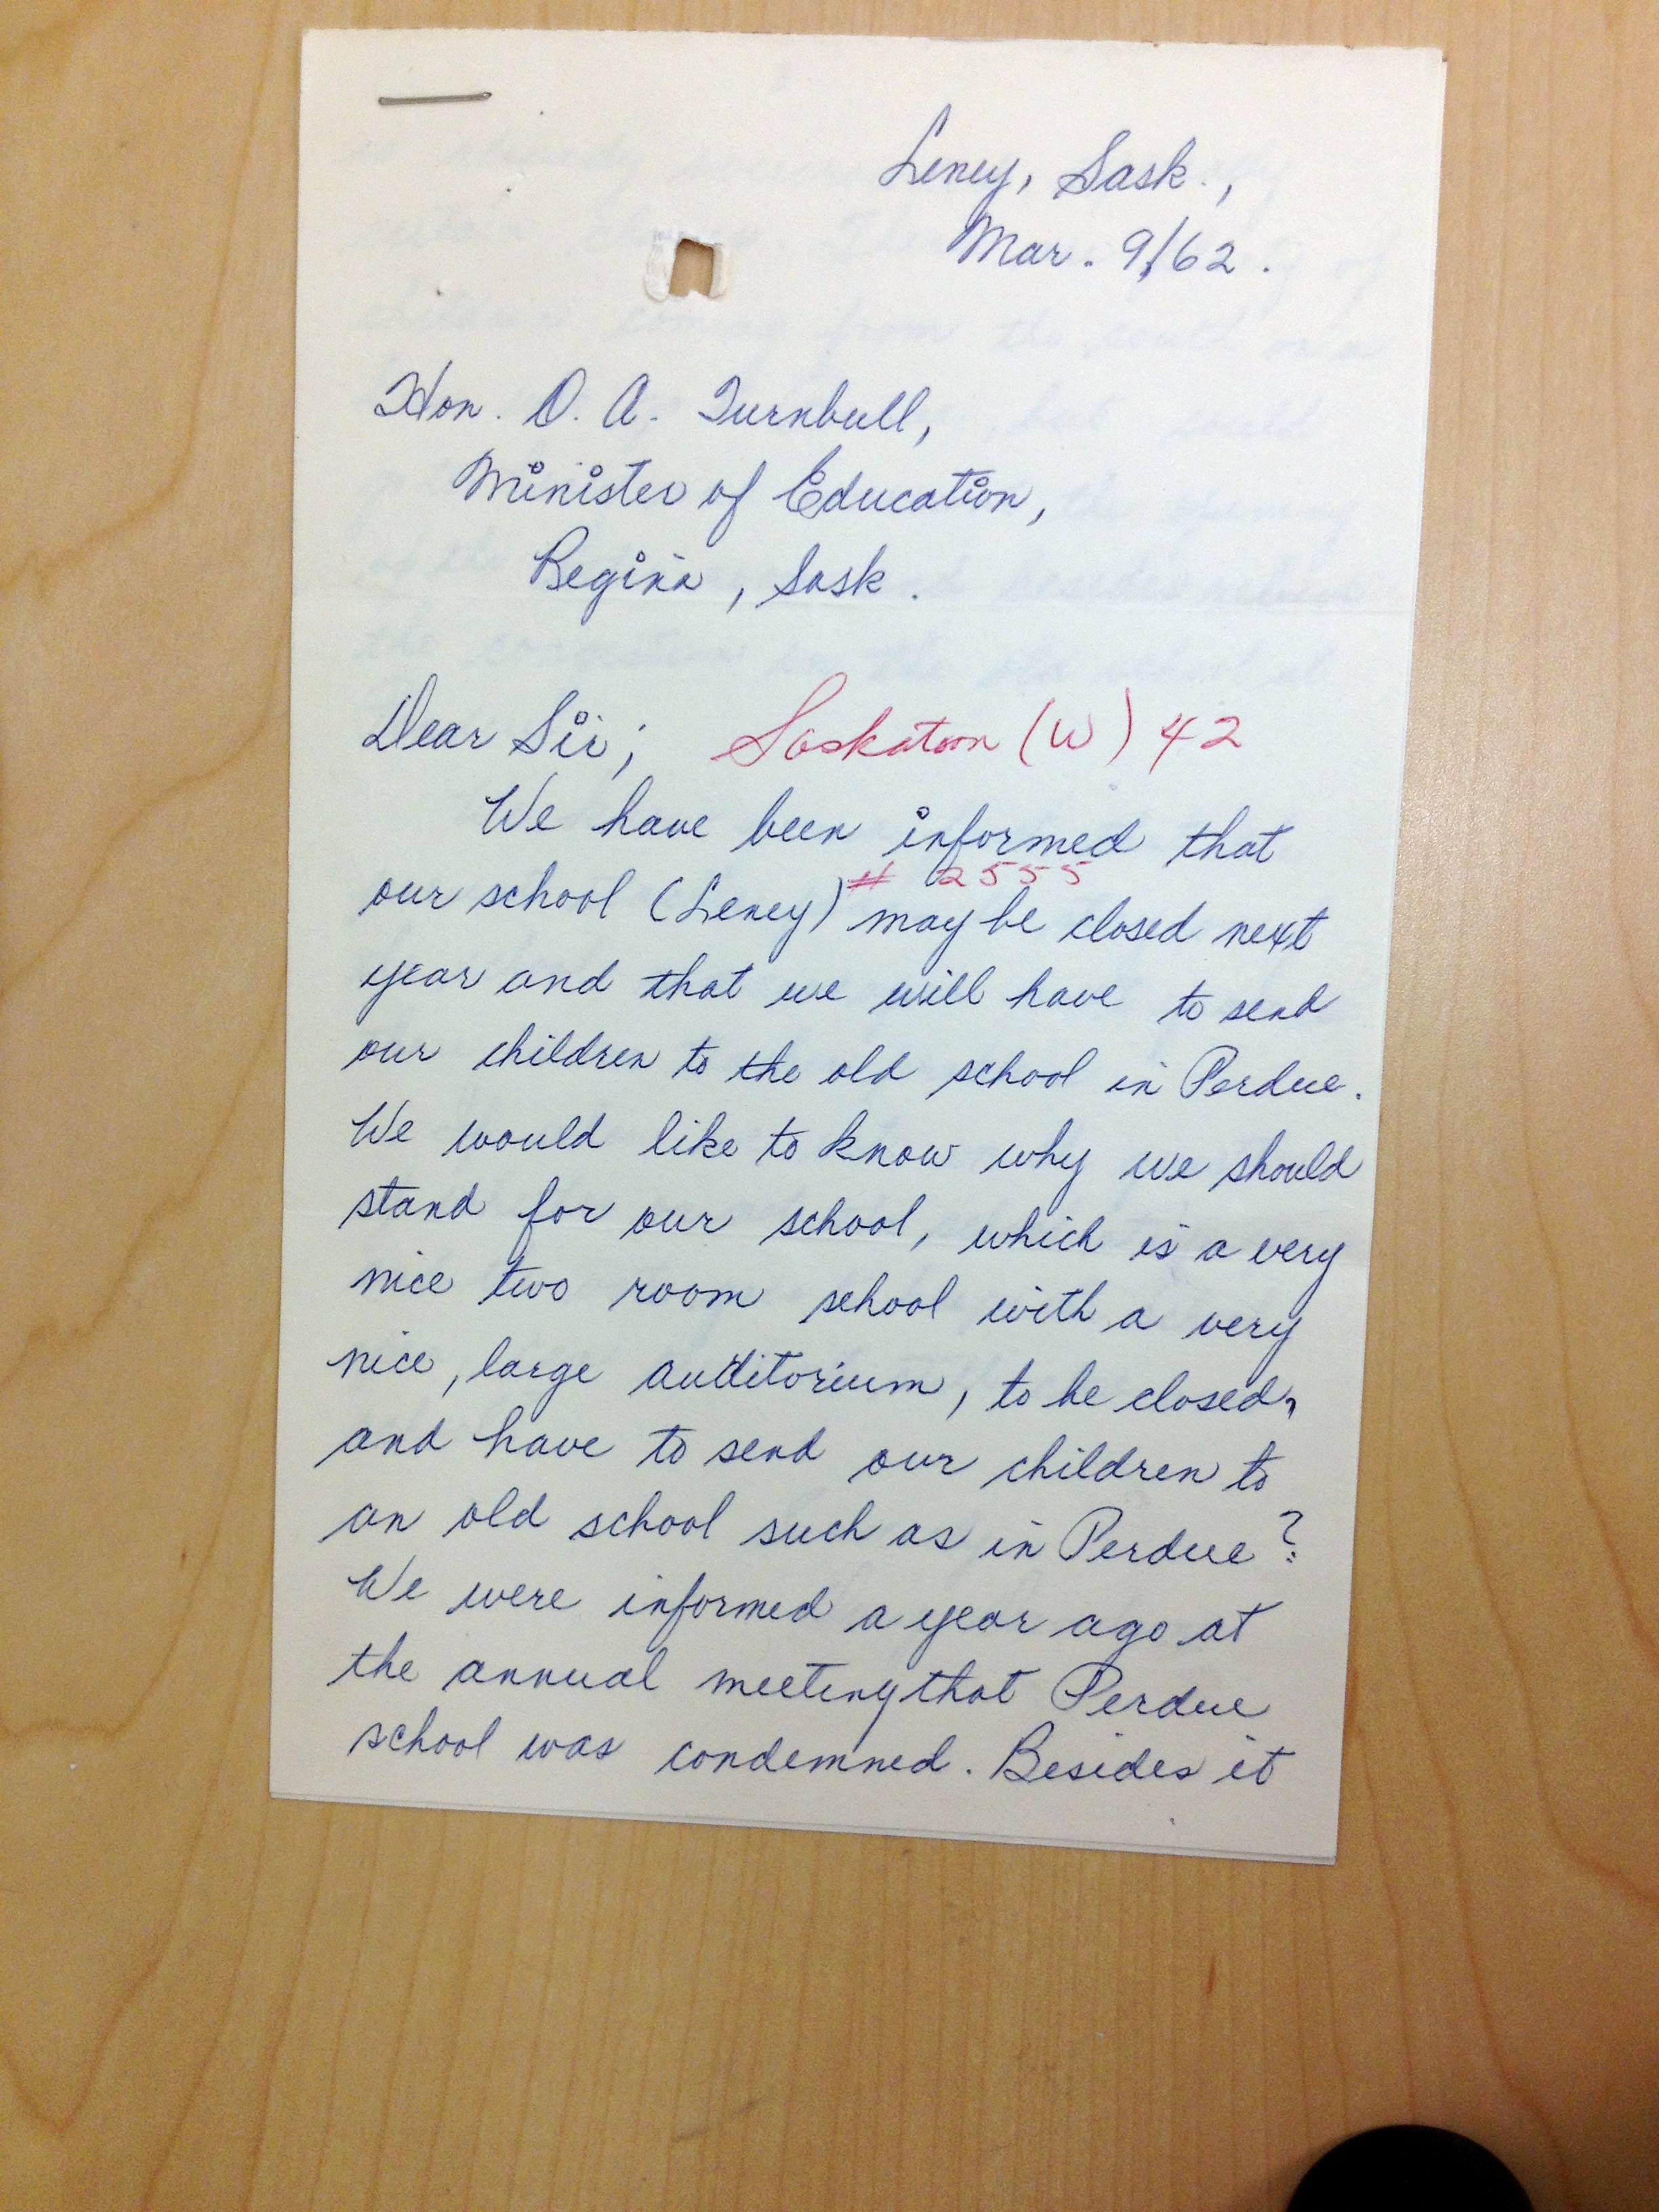 Leney, Sask.,
Mar. 9/62.
Hon. O. A. Turnbull,
Minister of Education,
Regina, Sask.
Dear Sir; Saskatoon (W) 42
We have been informed that
# 2555
our school (Leney) may be closed next
year and that we will have to send
our children to the old school in Perdue.
We would like to know why we should
stand for our school, which is a very
nice two room school with a very
nice, large auditorium, to be closed,
and have to send our children to
an old school such as in Perdue?
We were informed a year ago at
the annual meeting that Perdue
school was condemned. Besides it